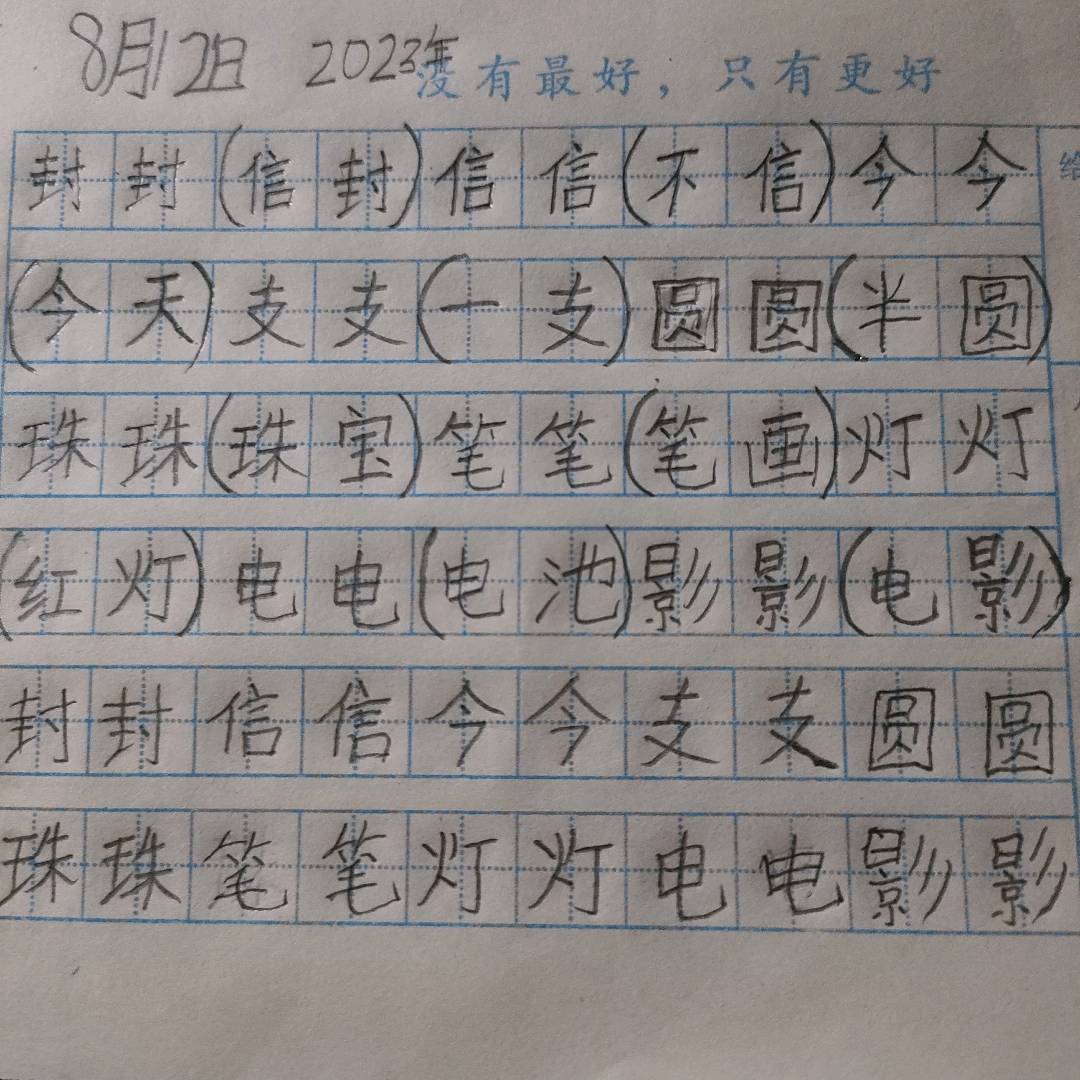 8月12日 2023年
没有最好，只有更好
封封(信封)信信(不信)今今
(今天)支支(一支)圆圆(半圆)
珠珠(珠宝)笔笔(笔画)灯灯
(红灯)电电(电池)影影(电影)
封封信信今今支支圆圆
珠珠笔笔灯灯电电影影